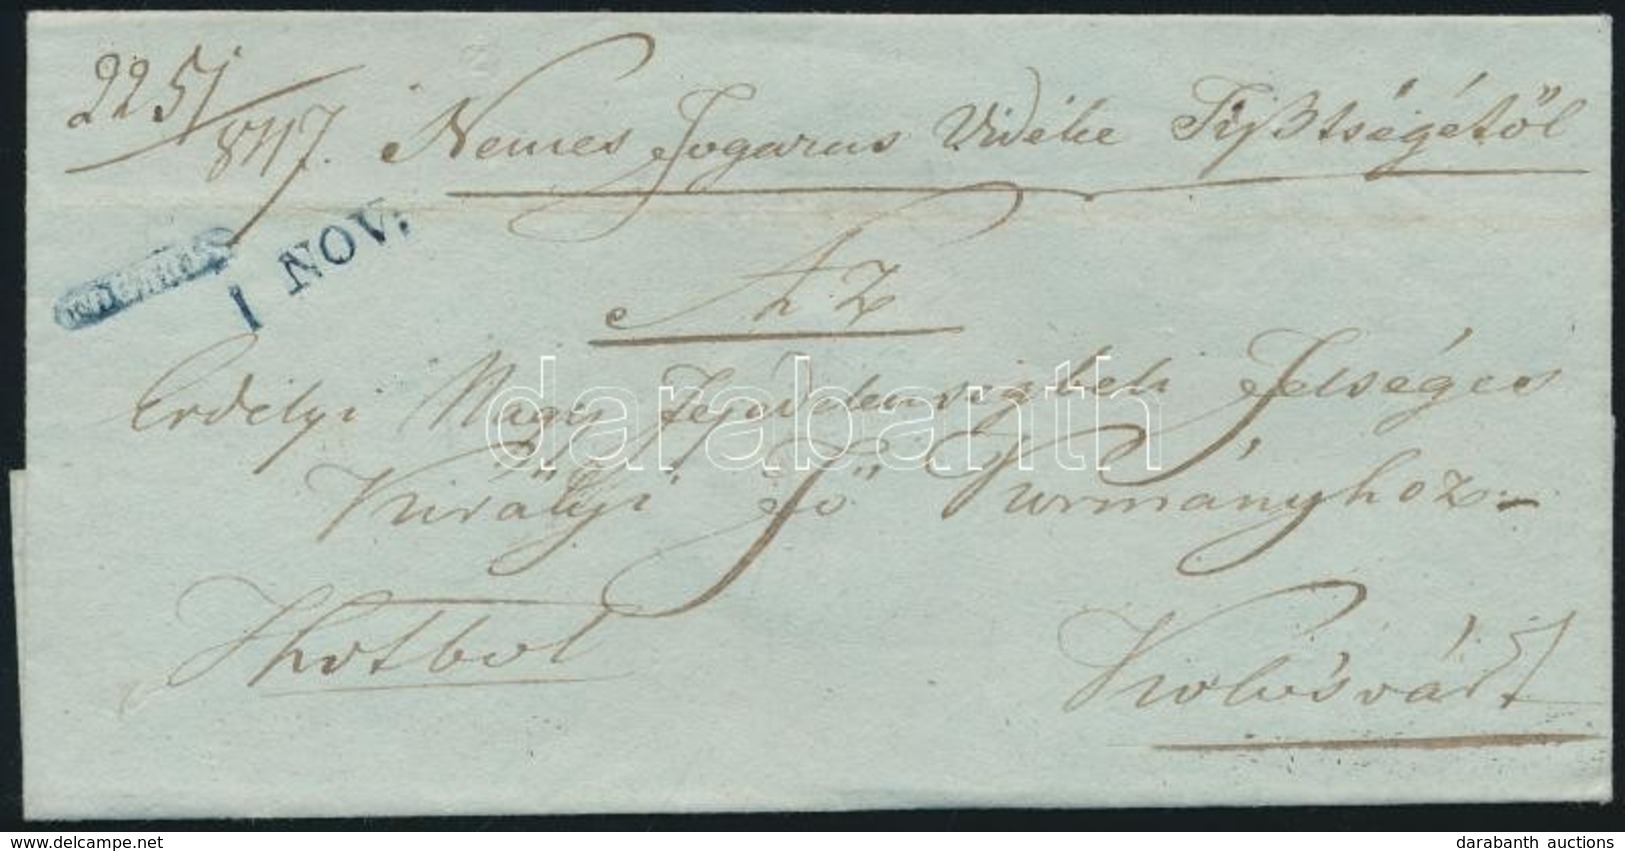 2251/847. Nemes Fogaras Vidéke Tisztségétöl
1 NOV.
Az
Erdélyi Nagy Fejedelemségbeli Felséges
Királyi Fö Kormányhoz
Kolosvárt
darabanth
darabanth auctions